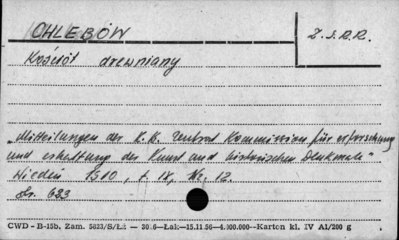 CHLEBÓW
Z.S.R.R.
Kościół drewniany
„Mitteilungen der K.K. Zentral Kommission für erforschung
und erhaltung der Kunst und historischen Denkmale"
Wiedeń 1910, t. IX, Nr. 12.
str. 633
CWD - B-15b. Zam. 5623/S/Łż — 30.6—Łak—15.11.56—4.000.000—Karton kl. IV A1/200 g